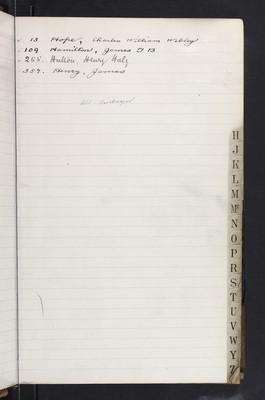 13 Hope, Charles William Webley
109 Hamilton, James
265. Hutton, Henry
357. Henry, James
H
J
K
L
M
Mc
N
O
P
R
S
T
U
V
W
Y
Z